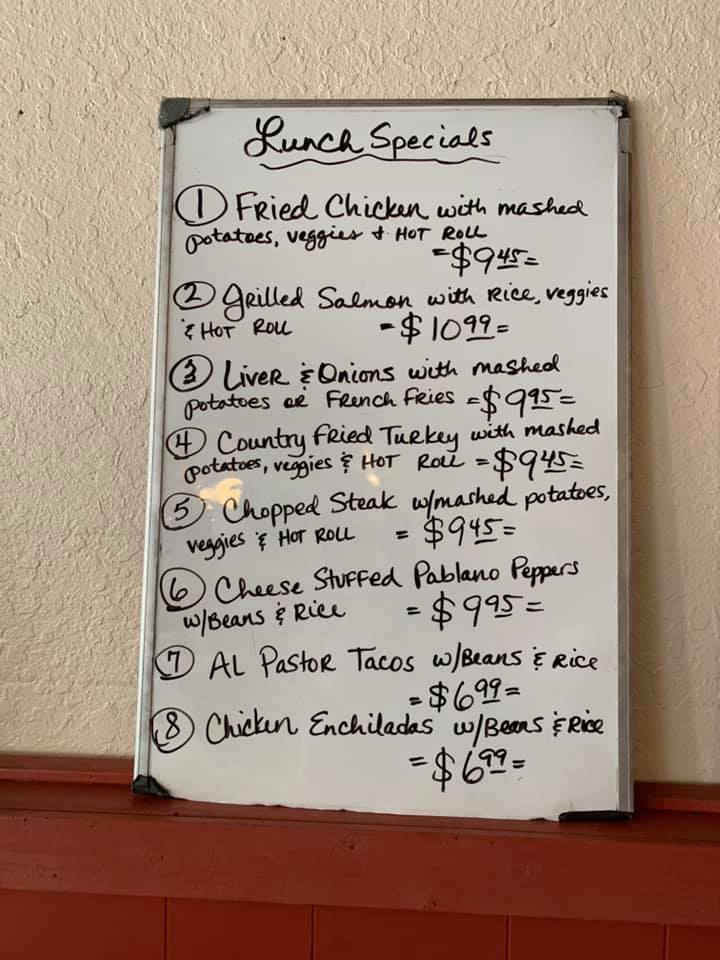 Lunch Specials
1 Fried Chicken with mashed
potatoes, veggies & HOT ROLL
=$9.45=
2 Grilled Salmon with Rice, veggies
& HOT ROLL =$10.99=
3 Liver & Onions with mashed
potatoes or French Fries =$9.95=
4 Country Fried Turkey with mashed
potatoes, veggies & HOT ROLL =$9.45=
5 Chopped Steak w/mashed potatoes,
veggies & HOT ROLL =$9.45=
6 Cheese Stuffed Pablano Peppers
w/Beans & Rice =$9.95=
7 AL Pastor Tacos w/Beans & Rice
=$6.99=
8 Chicken Enchiladas w/Beans & Rice
=$6.99=